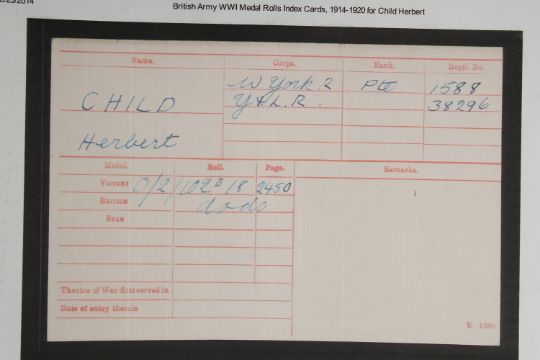 British Army WWI Medal Rolls Index Cards, 1914-1920 for Child Herbert
Name. Corps. Rank. Regtl. No.
W York R Pte 1588
CHILD Y & L.R. 38296
Herbert
Medal. Roll. Page. Remarks.
Victory O/2/102 B 18 2450
British do do
Star
Theatre of War first served in
Date of entry therein
K. 1380